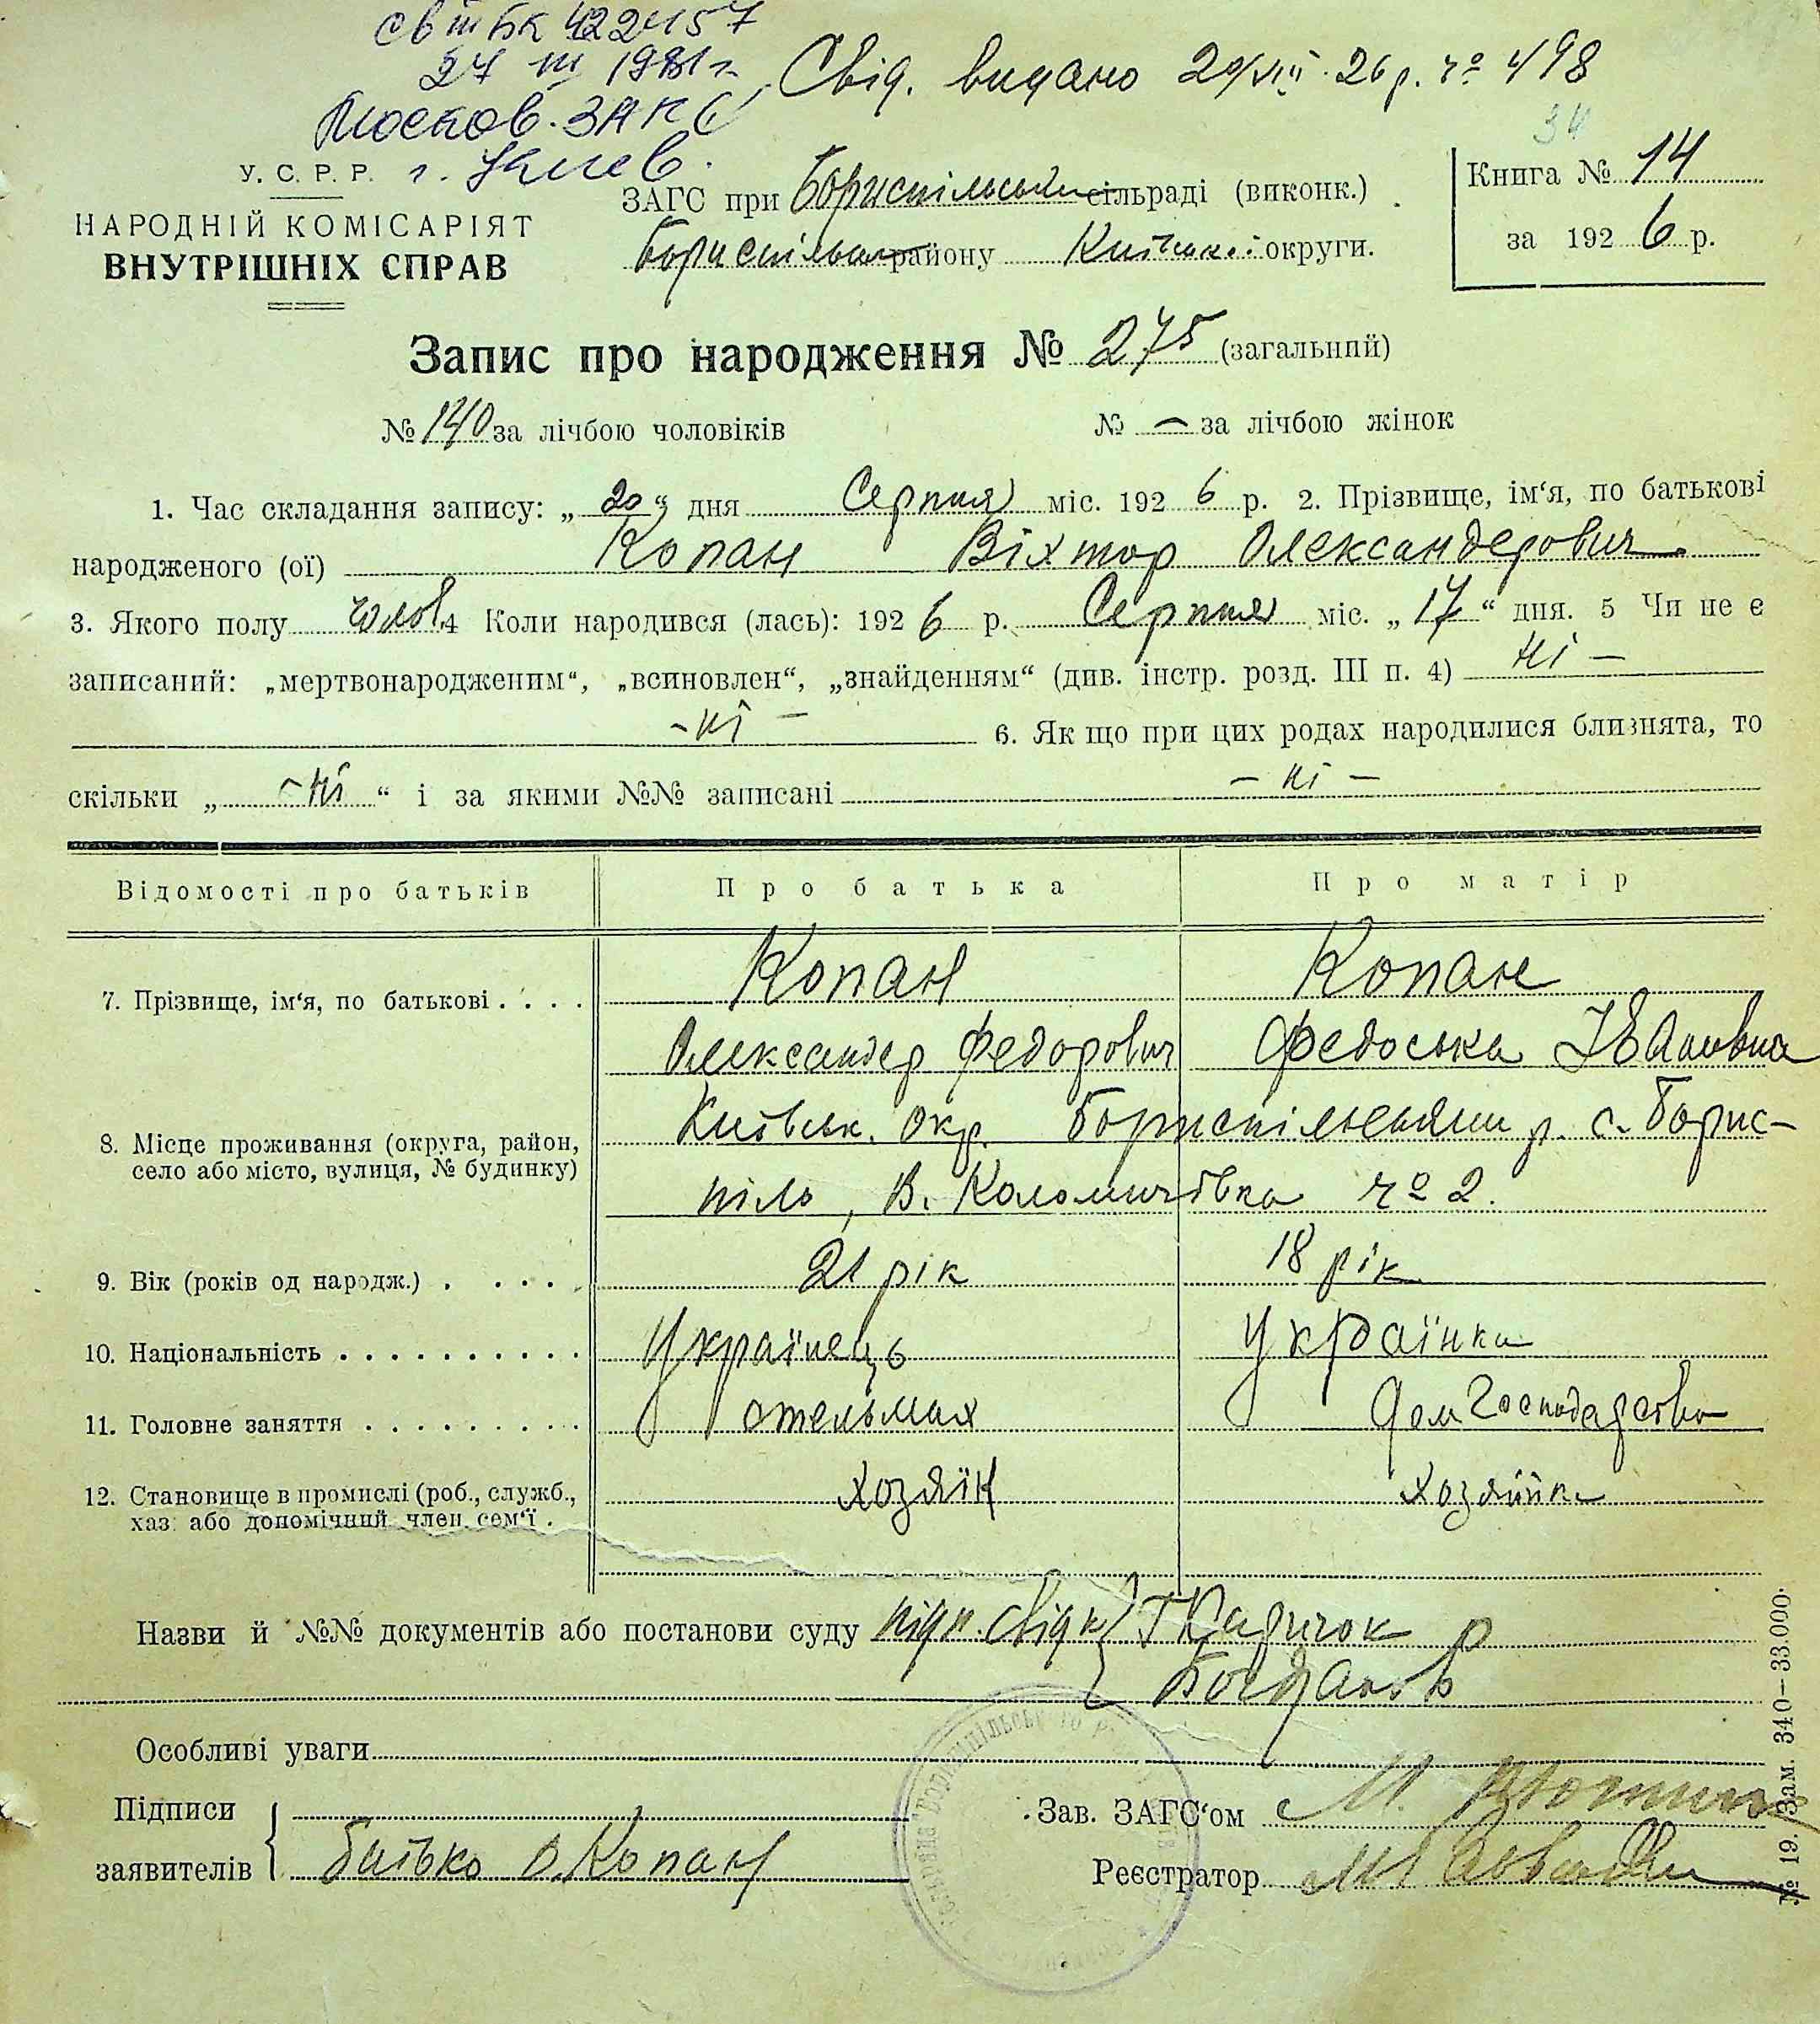 27 III 1981 г.
Свід. видано 20/VIII 26 р. № 498
Москов. ЗАГС
г. Киев.
34
У. С. Р. Р.
НАРОДНІЙ КОМІСАРІЯТ
ВНУТРІШНІХ СПРАВ
ЗАГС при Бориспільськ сільраді (виконк.)
району Київської округи.
Книга № 14
за 1926 р.
Запис про народження № 275 (загальний)
№ 140 за лічбою чоловіків № — за лічбою жінок
1. Час складання запису: „20“ дня Серпня міс. 1926 р. 2. Прізвище, ім‘я, по батькові
народженого (ої) Копан Віхтор Олександерович
3. Якого полу чолов. 4 Коли народився (лась): 1926 р. Серпня міс. „17“ дня. 5 Чи не є
записаний: „мертвонародженим“, „всиновлен“, „знайденням“ (див. інстр. розд. III п. 4) ні —
- ні — 6. Як що при цих родах народилися близнята, то
скільки „ - ні “ і за якими №№ записані — ні —
Відомості про батьків Про батька Про матір
7. Прізвище, ім‘я, по батькові . . . . Копан Копан
Олександер Федорович Федоська Івановна
8. Місце проживання (округа, район, село або місто, вулиця, № будинку) Київськ. окр. р. с. Борис-
піль, В. № 2.
9. Вік (років од народж.) . . . . 21 рік 18 рік
10. Національність . . . . . . . . . . Українець Українка
11. Головне заняття . . . . . . . . . стельмах Дом Господарство
12. Становище в промислі (роб., служб., хаз. або допомічний член сем‘ї . хозяїн хозяйка
Назви й №№ документів або постанови суду підп. свідк
Особливі уваги
Підписи
заявителів батько О. Копан
Зав. ЗАГС‘ом М.
Реєстратор
№ 19. Зам. 340—33.000.